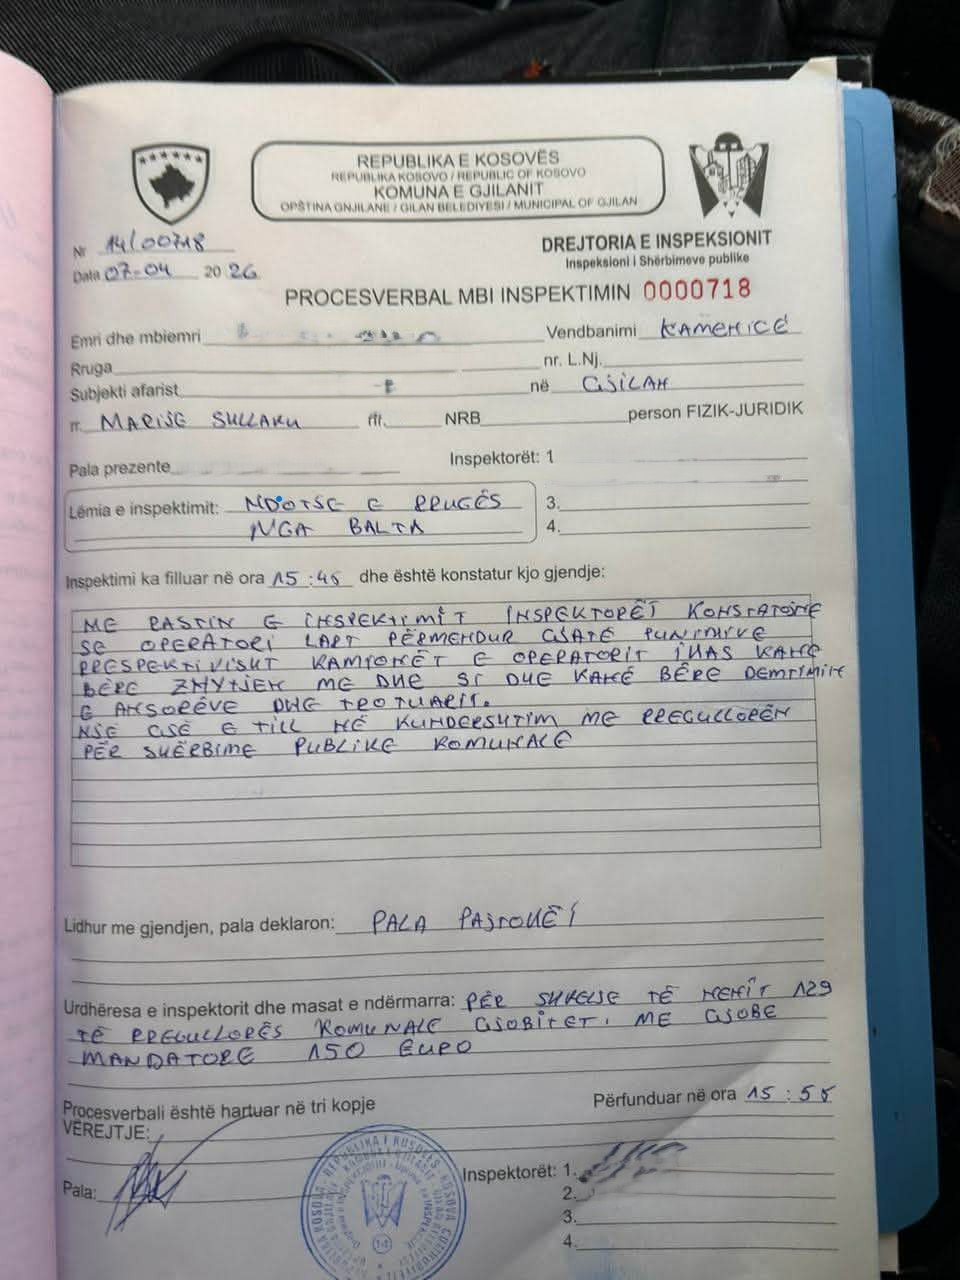 REPUBLIKA E KOSOVËS
REPUBLIKA KOSOVO / REPUBLIC OF KOSOVO
KOMUNA E GJILANIT
OPŠTINA GNJILANE / GILAN BELEDIYESI / MUNICIPAL OF GJILAN
Nr 14/00718
Data 07-04 2026
DREJTORIA E INSPEKSIONIT
Inspeksioni i Shërbimeve publike
PROCESVERBAL MBI INSPEKTIMIN 0000718
Emri dhe mbiemri Vendbanimi KAMENICË
Rruga nr. L.Nj.
Subjekti afarist në GJILAN
rr. MARIJE SHLLAKU nr. NRB person FIZIK-JURIDIK
Pala prezente Inspektorët: 1
Lëmia e inspektimit: NDOTJE E RRUGËS 3.
NGA BALTA 4.
Inspektimi ka filluar në ora 15:45 dhe është konstatur kjo gjendje:
ME RASTIN E INSPEKTIMIT INSPEKTORËT KONSTATOJNË
SE OPERATORI LART PËRMENDUR GJATË PUNIMIVE
RRESPEKTIVISHT KAMIONËT E OPERATORIT KANË
BËRË ME DHE SI DHE KANË BËRË DEMTIMIN
E ANSORËVE DHE TROTUARIT.
NJË GJË E TILL NË KUNDERSHTIM ME RREGULLORËN
PËR SHËRBIME PUBLIKE KOMUNALE
Lidhur me gjendjen, pala deklaron: PALA PAJTOHËT
Urdhëresa e inspektorit dhe masat e ndërmarra: PËR SHKELJE TË NENIT 129
TË RREGULLORËS KOMUNALE GJOBITET. ME GJOBË
MANDATORE 150 EURO
Procesverbali është hartuar në tri kopje Përfunduar në ora 15:55
VËREJTJE:
Pala: Inspektorët: 1.
2.
3.
4.